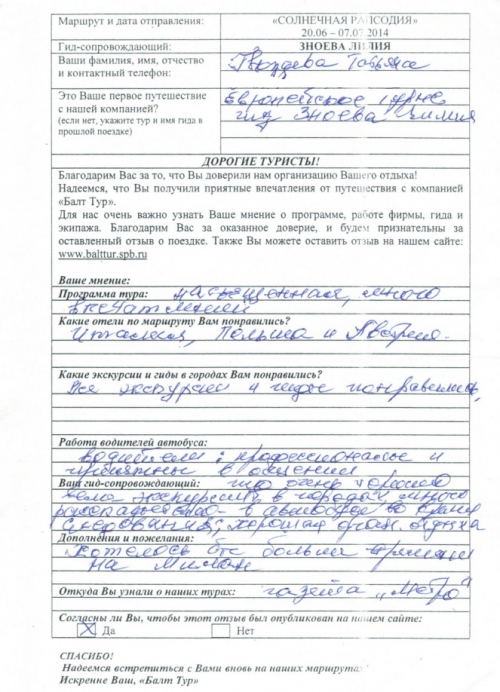 Маршрут и дата отправления: «СОЛНЕЧНАЯ РАПСОДИЯ»
20.06 – 07.07 2014
Гид-сопровождающий: ЗНОЕВА ЛИЛИЯ
Ваши фамилия, имя, отчество
и контактный телефон: Татьяна
Это Ваше первое путешествие
с нашей компанией?
(если нет, укажите тур и имя гида в
прошлой поездке)
Европейское турне
гид Зноева Лилия
ДОРОГИЕ ТУРИСТЫ!
Благодарим Вас за то, что Вы доверили нам организацию Вашего отдыха!
Надеемся, что Вы получили приятные впечатления от путешествия с компанией
«Балт Тур».
Для нас очень важно узнать Ваше мнение о программе, работе фирмы, гида и
экипажа. Благодарим Вас за оказанное доверие, и будем признательны за
оставленный отзыв о поездке. Также Вы можете оставить отзыв на нашем сайте:
www.balttur.spb.ru
Ваше мнение:
Программа тура: насыщенная, много
впечатлений
Какие отели по маршруту Вам понравились?
Италия, Польша и Австрия.
Какие экскурсии и гиды в городах Вам понравились?
Все экскурсии и гиды понравились,
Работа водителей автобуса:
водители: профессионалы и
приятны в общении
Ваш гид-сопровождающий: гид очень хорошо
вела экскурсии в городах, много
рассказывала в автобусе во время
следования; хорошая орган. отдыха
Дополнения и пожелания:
Хотелось бы больше времени
на Милан
Откуда Вы узнали о наших турах: газета „Метро"
Согласны ли Вы, чтобы этот отзыв был опубликован на нашем сайте:
X Да Нет
СПАСИБО!
Надеемся встретиться с Вами вновь на наших маршрутах
Искренне Ваш, «Балт Тур»